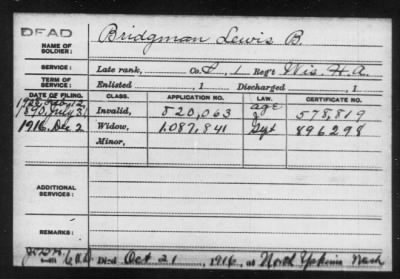 DEAD
NAME OF SOLDIER:
Bridgman Lewis B.
SERVICE:
Late rank, Co. L, 1 Reg't Wis. H.A.
TERM OF SERVICE:
Enlisted , 1 Discharged , 1
DATE OF FILING. CLASS. APPLICATION NO. LAW. CERTIFICATE NO.
12
1890, July 31 Invalid, 820,063 age 578,819
1916, Dec 2 Widow, 1,087,841 896298
Minor,
ADDITIONAL SERVICES:
REMARKS:
Died Oct 21, 1916, at North Yakima Wash